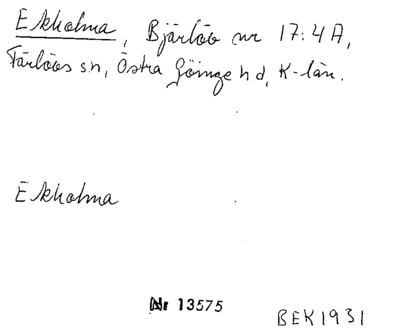 Ekholma, Bjärlöv nr 17:4 A,
Färlövs sn, Östra Göinge hd, K-län.
Ekholma
Nr 13575
BEK1931